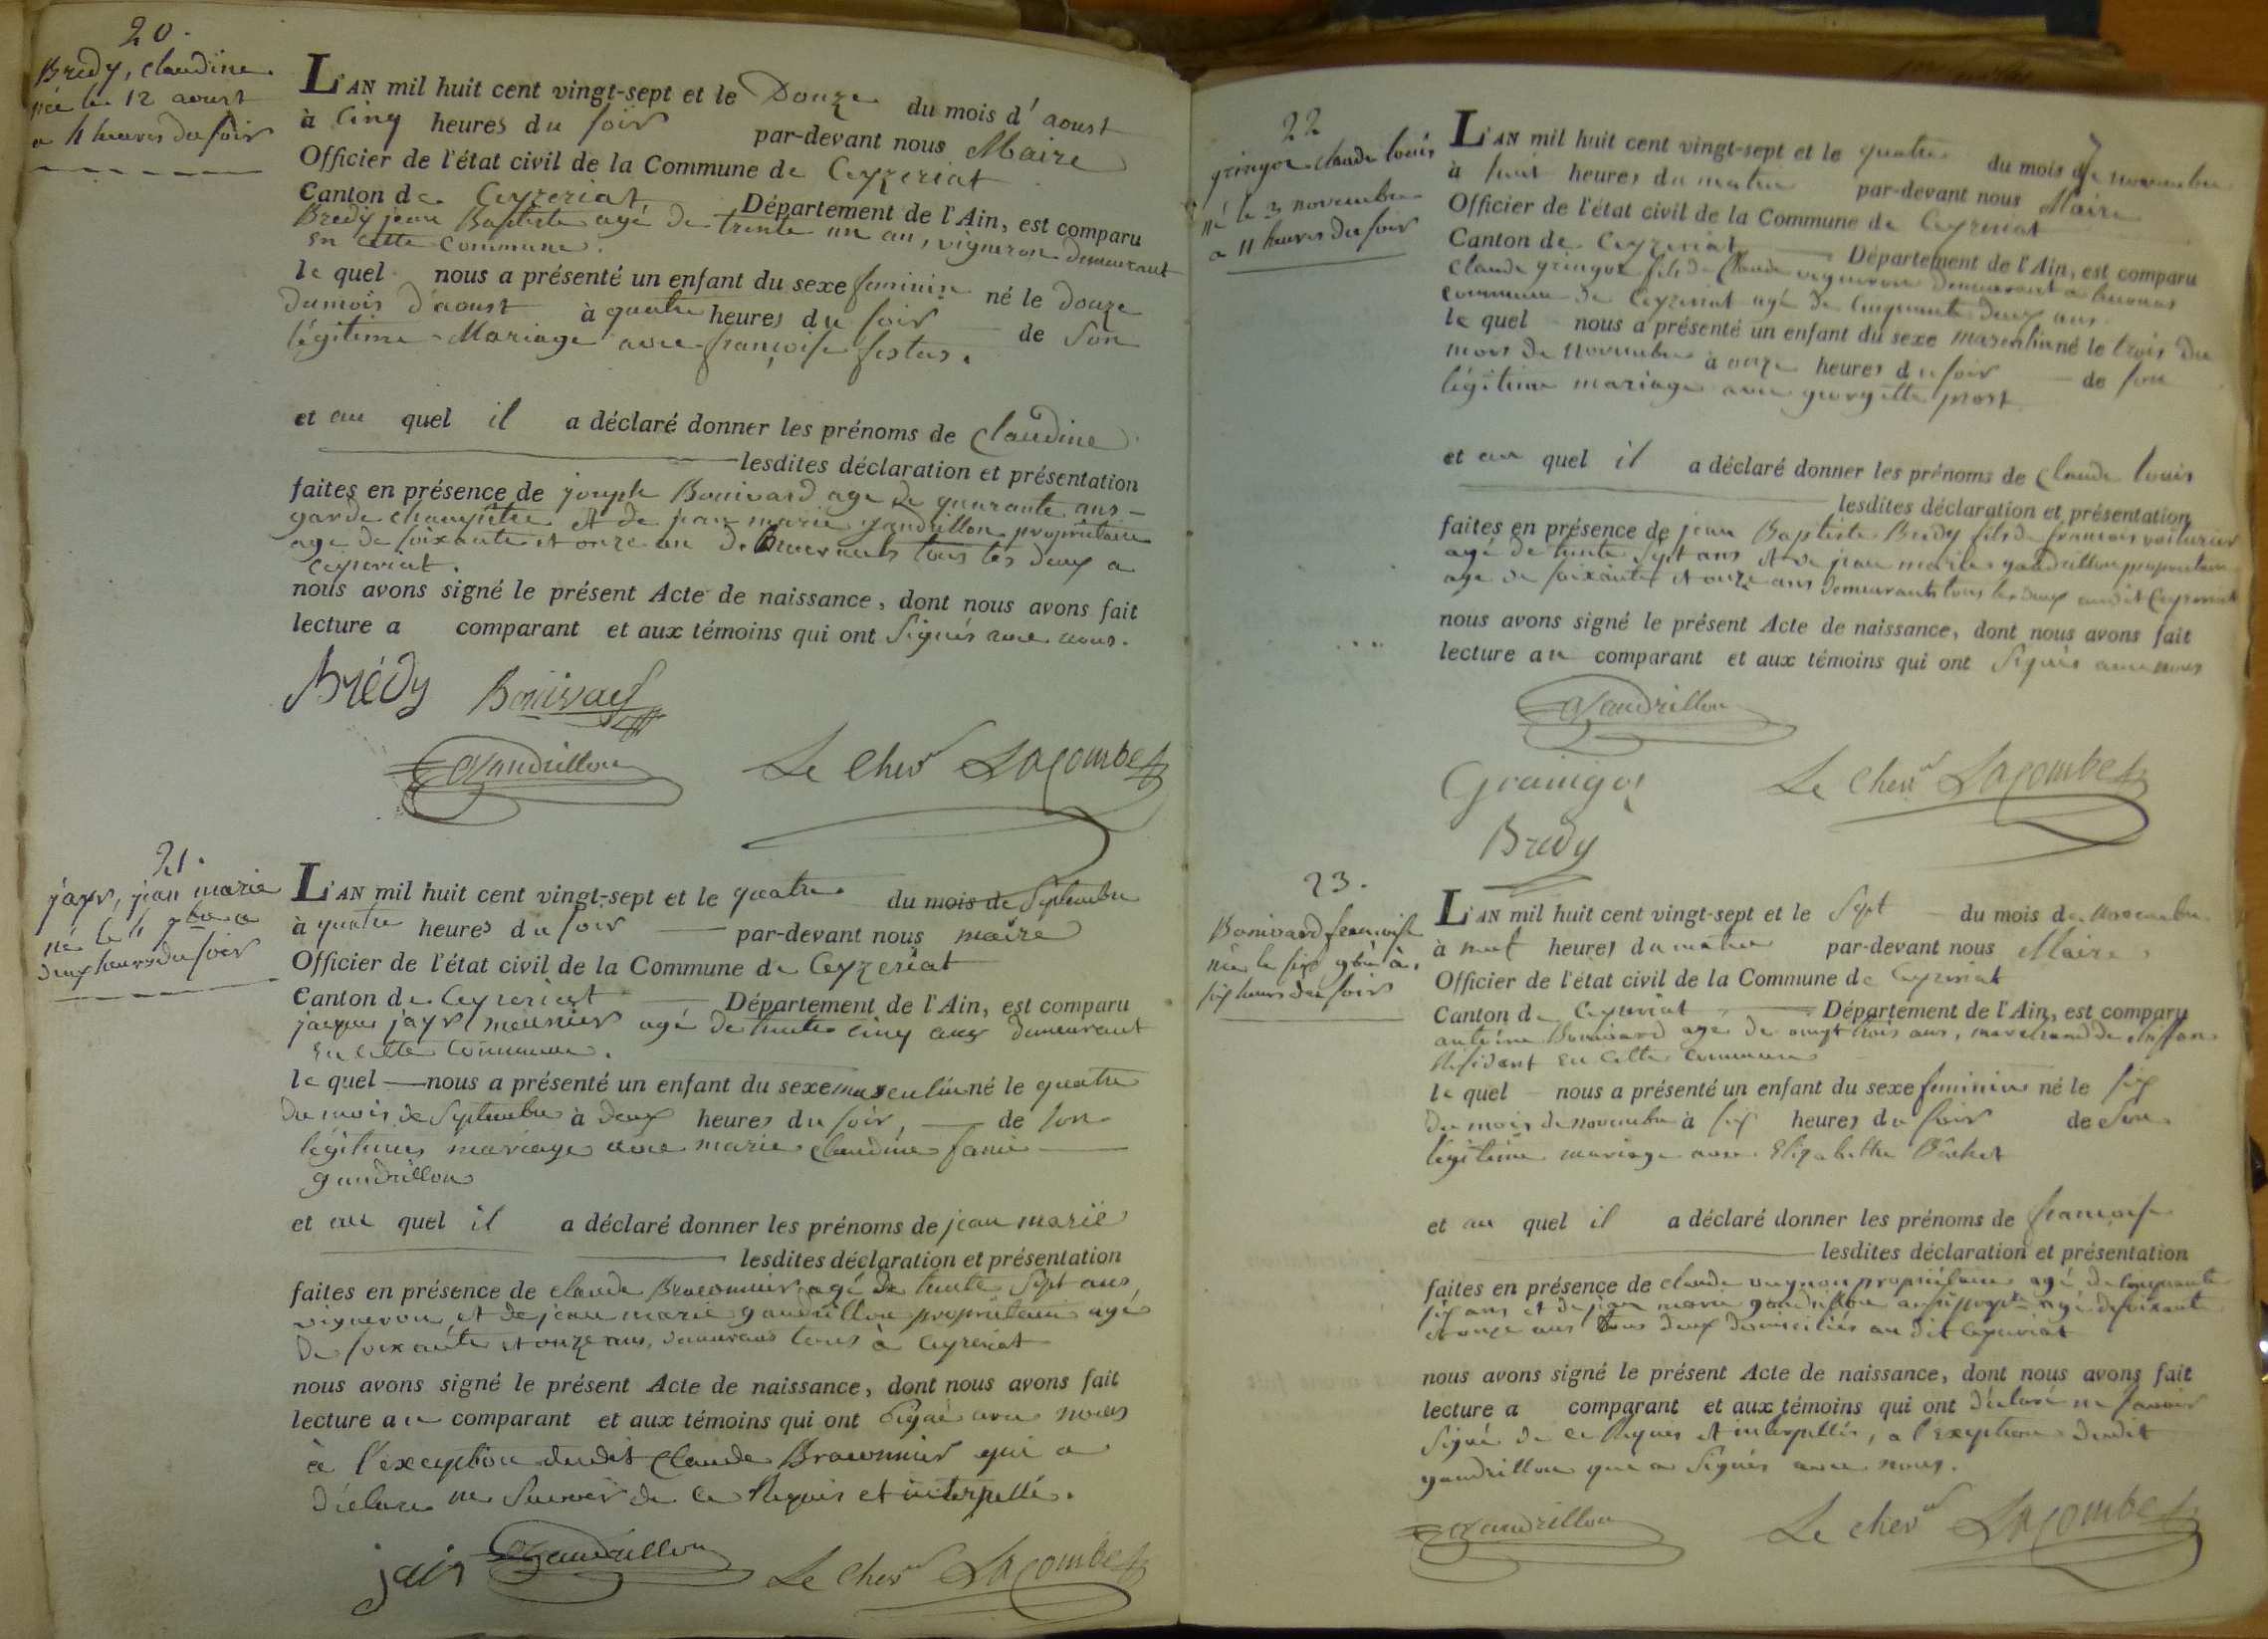 20.
Bredy, claudine.
née le 12 aoust
a 4 heures du soir
L'AN mil huit cent vingt-sept et le Douze du mois d'aoust
à Cinq heures du soir par-devant nous Maire
Officier de l'état civil de la Commune de Ceyzeriat
Canton de Ceyzeriat, Département de l'Ain, est comparu
Bredy jean Baptiste agé de trente un an, vigneron demeurant
en cette commune.
le quel nous a présenté un enfant du sexe feminin né le douze
du mois d'aoust à quatre heures du soir de son
légitime Mariage avec françoise festas.
et au quel il a déclaré donner les prénoms de Claudine
lesdites déclaration et présentation
faites en présence de joseph Bonivard age de quarante ans
garde champêtre et de jean marie gandrillon propriétaire
age de soixante et onze an demeurants tous les deux a
Ceyzeriat.
nous avons signé le présent Acte de naissance, dont nous avons fait
lecture a comparant et aux témoins qui ont signés avec nous.
Brédy Bonivard
Gandrillon Le Chevr Lacombe
21.
jayr, jean marie
né le 4 7bre a
deux heures du soir
L'AN mil huit cent vingt-sept et le quatre du mois de Septembre
à quatre heures du soir par-devant nous maire
Officier de l'état civil de la Commune de Ceyzeriat
Canton de Ceyzeriat Département de l'Ain, est comparu
jacques jayr meunier agé de trente cinq ans demeurant
en cette commune.
le quel nous a présenté un enfant du sexe masculin né le quatre
du mois de Septembre à deux heures du soir, de son
légitime mariage avec marie claudine fanie
gandrillon
et au quel il a déclaré donner les prénoms de jean marie
lesdites déclaration et présentation
faites en présence de claude Braconnier agé de trente sept ans
vigneron et de jean marie gandrillon propriétaire agé
de soixante et onze ans, demeurans tous à Ceyzeriat
nous avons signé le présent Acte de naissance, dont nous avons fait
lecture au comparant et aux témoins qui ont signé avec nous
à l'exception dudit Claude Braconnier qui a
déclare ne savoir de ce Requis et interpellé.
jair Gandrillon Le Chevr Lacombe
22
gringoz claude louis
né le 3 novembre
a 11 heures du soir
L'AN mil huit cent vingt-sept et le quatre du mois de novembre
à huit heures du matin par-devant nous Maire
Officier de l'état civil de la Commune de Ceyzeriat
Canton de Ceyzeriat Département de l'Ain, est comparu
Claude gringoz fils de Claude vigneron demeurant a
commune de Ceyzeriat agé de cinquante deux ans
le quel nous a présenté un enfant du sexe masculin né le trois du
mois de novembre à onze heures du soir de son
légitime mariage avec georgette
et au quel il a déclaré donner les prénoms de Claude louis
lesdites déclaration et présentation
faites en présence de jean Baptiste Bredy fils de francois voiturier
agé de trente sept ans et de jean marie gandrillon propriétaire
age de soixante et onze ans demeurants tous les deux audit Ceyzeriat
nous avons signé le présent Acte de naissance, dont nous avons fait
lecture au comparant et aux témoins qui ont signés avec nous
Gandrillon
Graingoz Le Chevr Lacombe
Bredy
23.
Bonivard francoise
née le six 9bre à
six heures du soir
L'AN mil huit cent vingt-sept et le Sept du mois de novembre
à neuf heures du matin par-devant nous Maire
Officier de l'état civil de la Commune de Ceyzeriat
Canton de Ceyzeriat Département de l'Ain, est comparu
antoine Bonivard age de vingt trois ans, marchand de chiffons
Résidant en cette commune
le quel nous a présenté un enfant du sexe feminin né le six
du mois de novembre à six heures du soir de son
légitime mariage avec Elizabethe
et au quel il a déclaré donner les prénoms de francoise
lesdites déclaration et présentation
faites en présence de claude propriétaire agé de cinquante
six ans et de jean marie gandrillon aussi propre agé de soixante
et onze ans tous deux domiciliés au dit Ceyzeriat
nous avons signé le présent Acte de naissance, dont nous avons fait
lecture a comparant et aux témoins qui ont déclaré ne savoir
signé de ce Requis et interpellés, a l'exception dudit
gandrillon qui a signés avec nous.
Gandrillon Le Chevr Lacombe